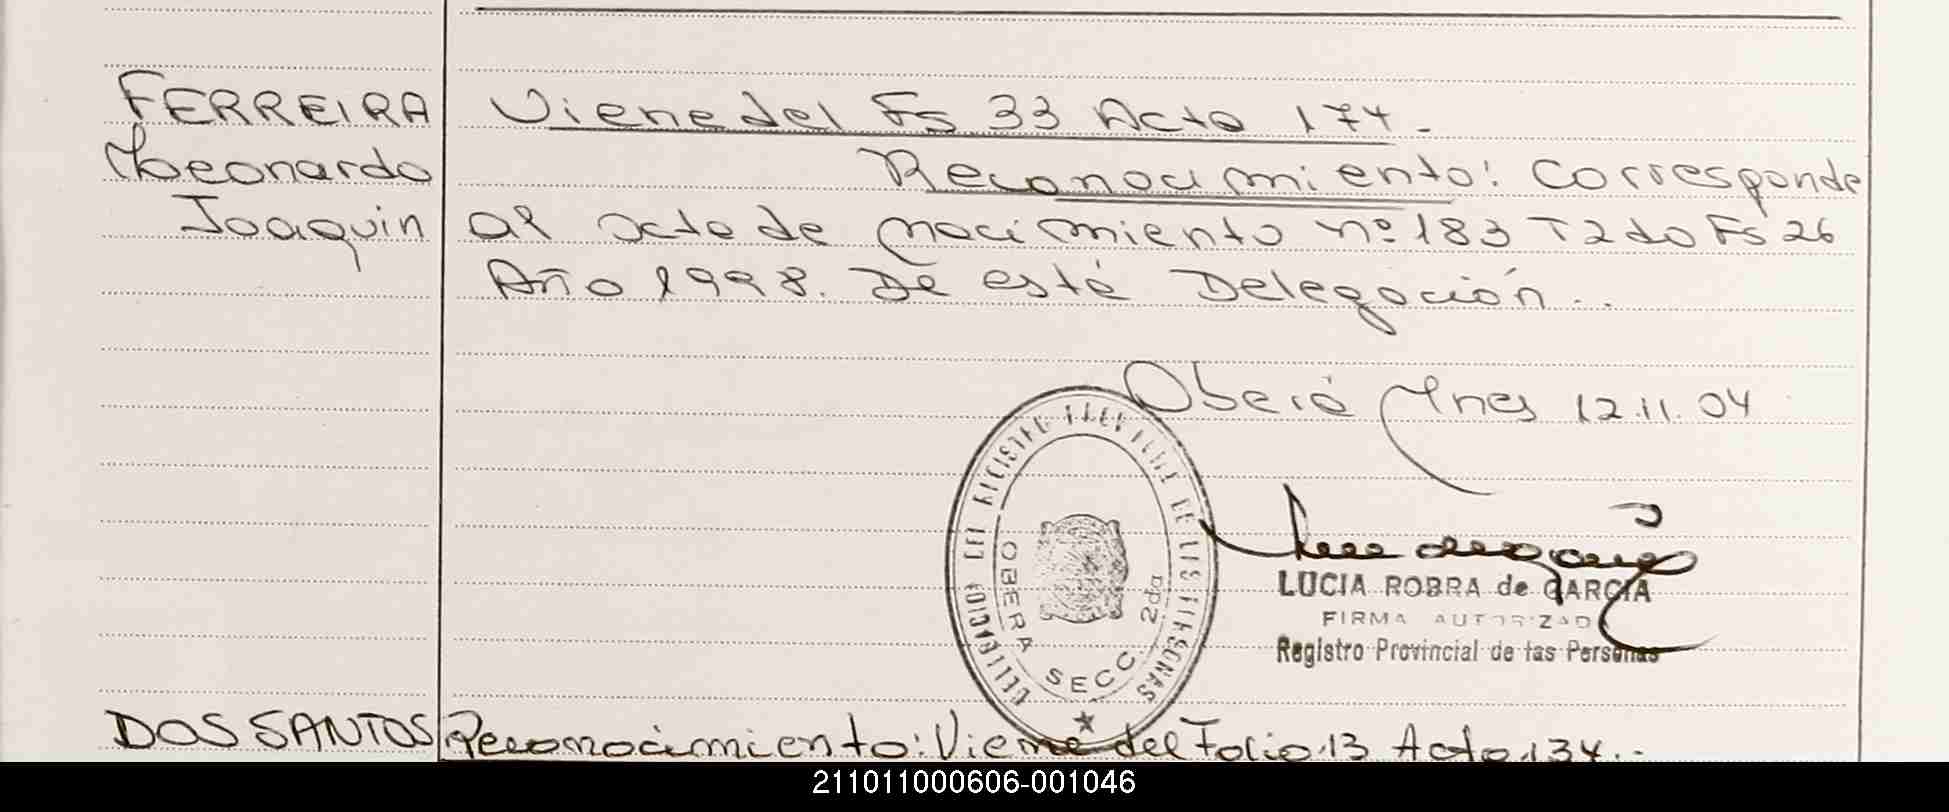 FERREIRA Viene del Fs 33 Acta 174.
Leonardo Reconocimiento: Corresponde
Joaquin al acta de nacimiento nº 183 T2do Fs 26
Año 1998. De esté Delegación..
Oberá Mnes 12.11.04
DELEGACION DEL REGISTRO PROVINCIAL DE LAS PERSONAS
OBERA SECC. 2da
LUCIA ROBRA de GARCIA
FIRMA AUTORIZADA
Registro Provincial de las Personas
DOS SANTOS Reconocimiento: Viene del Folio 13 Acta 134.-
211011000606-001046